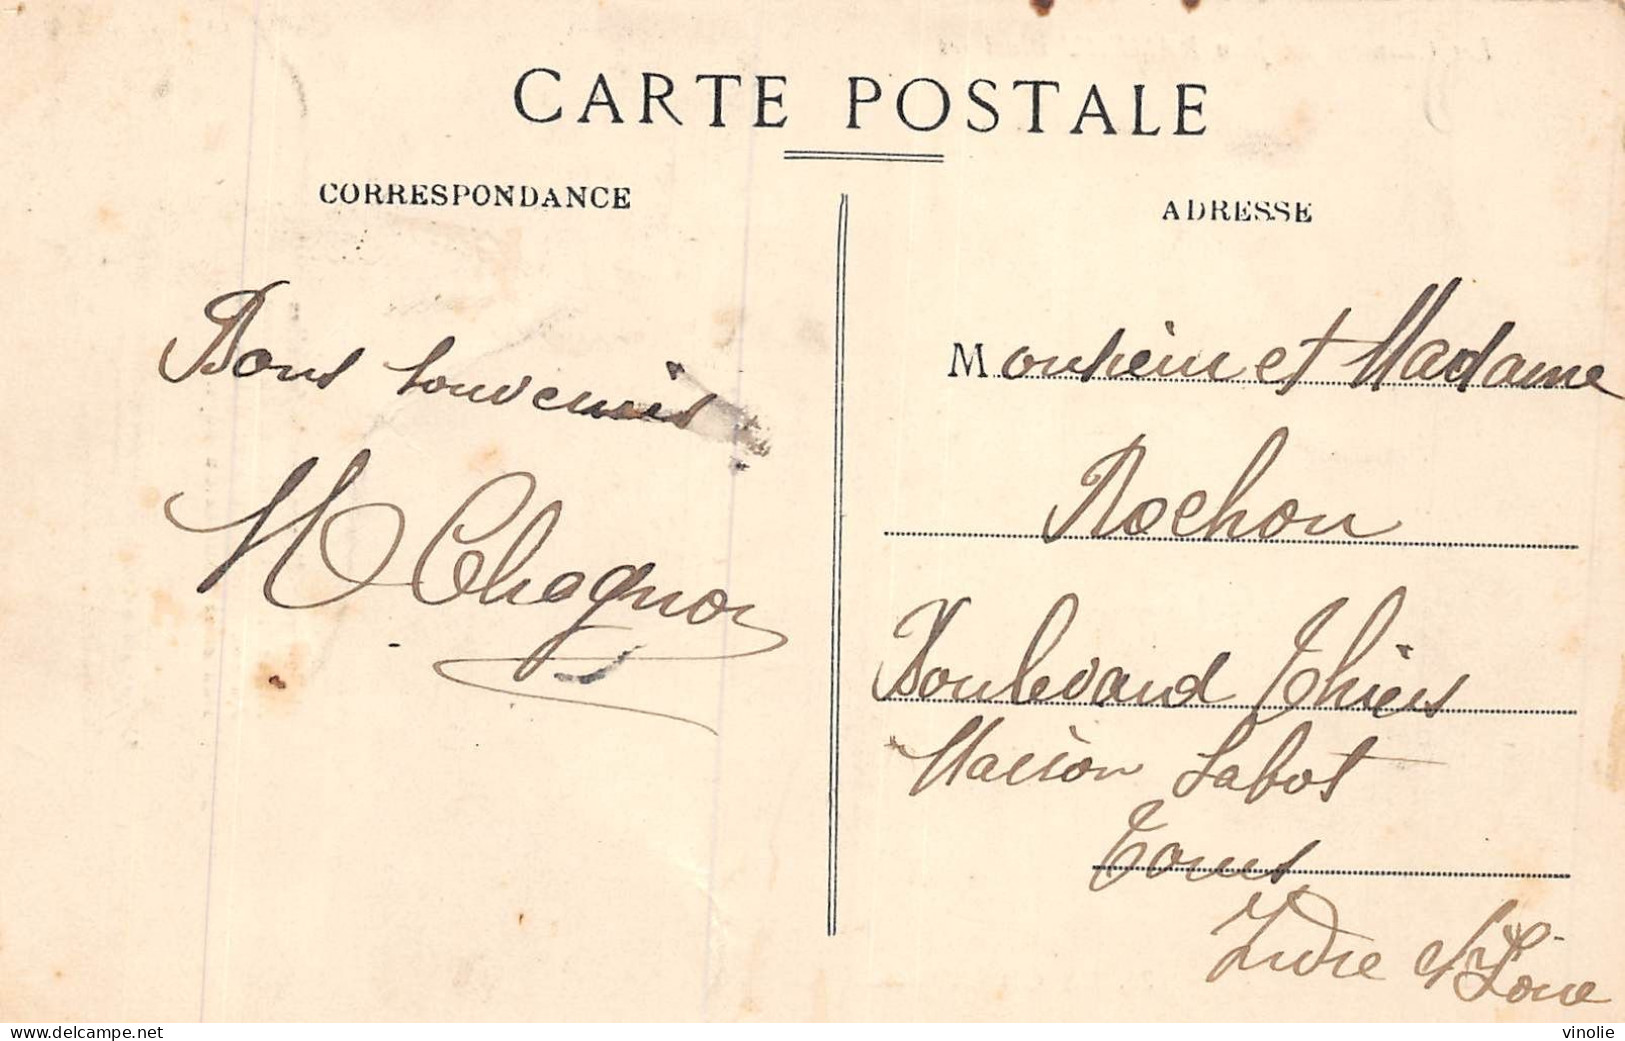 CARTE POSTALE
CORRESPONDANCE
ADRESSE
Bons souvenirs
M Chagnon
Monsieur et Madame
Rochon
Boulevard Thiers
Maison Sabot
Tours
Indre et Loire
delcampe.net
vinolie